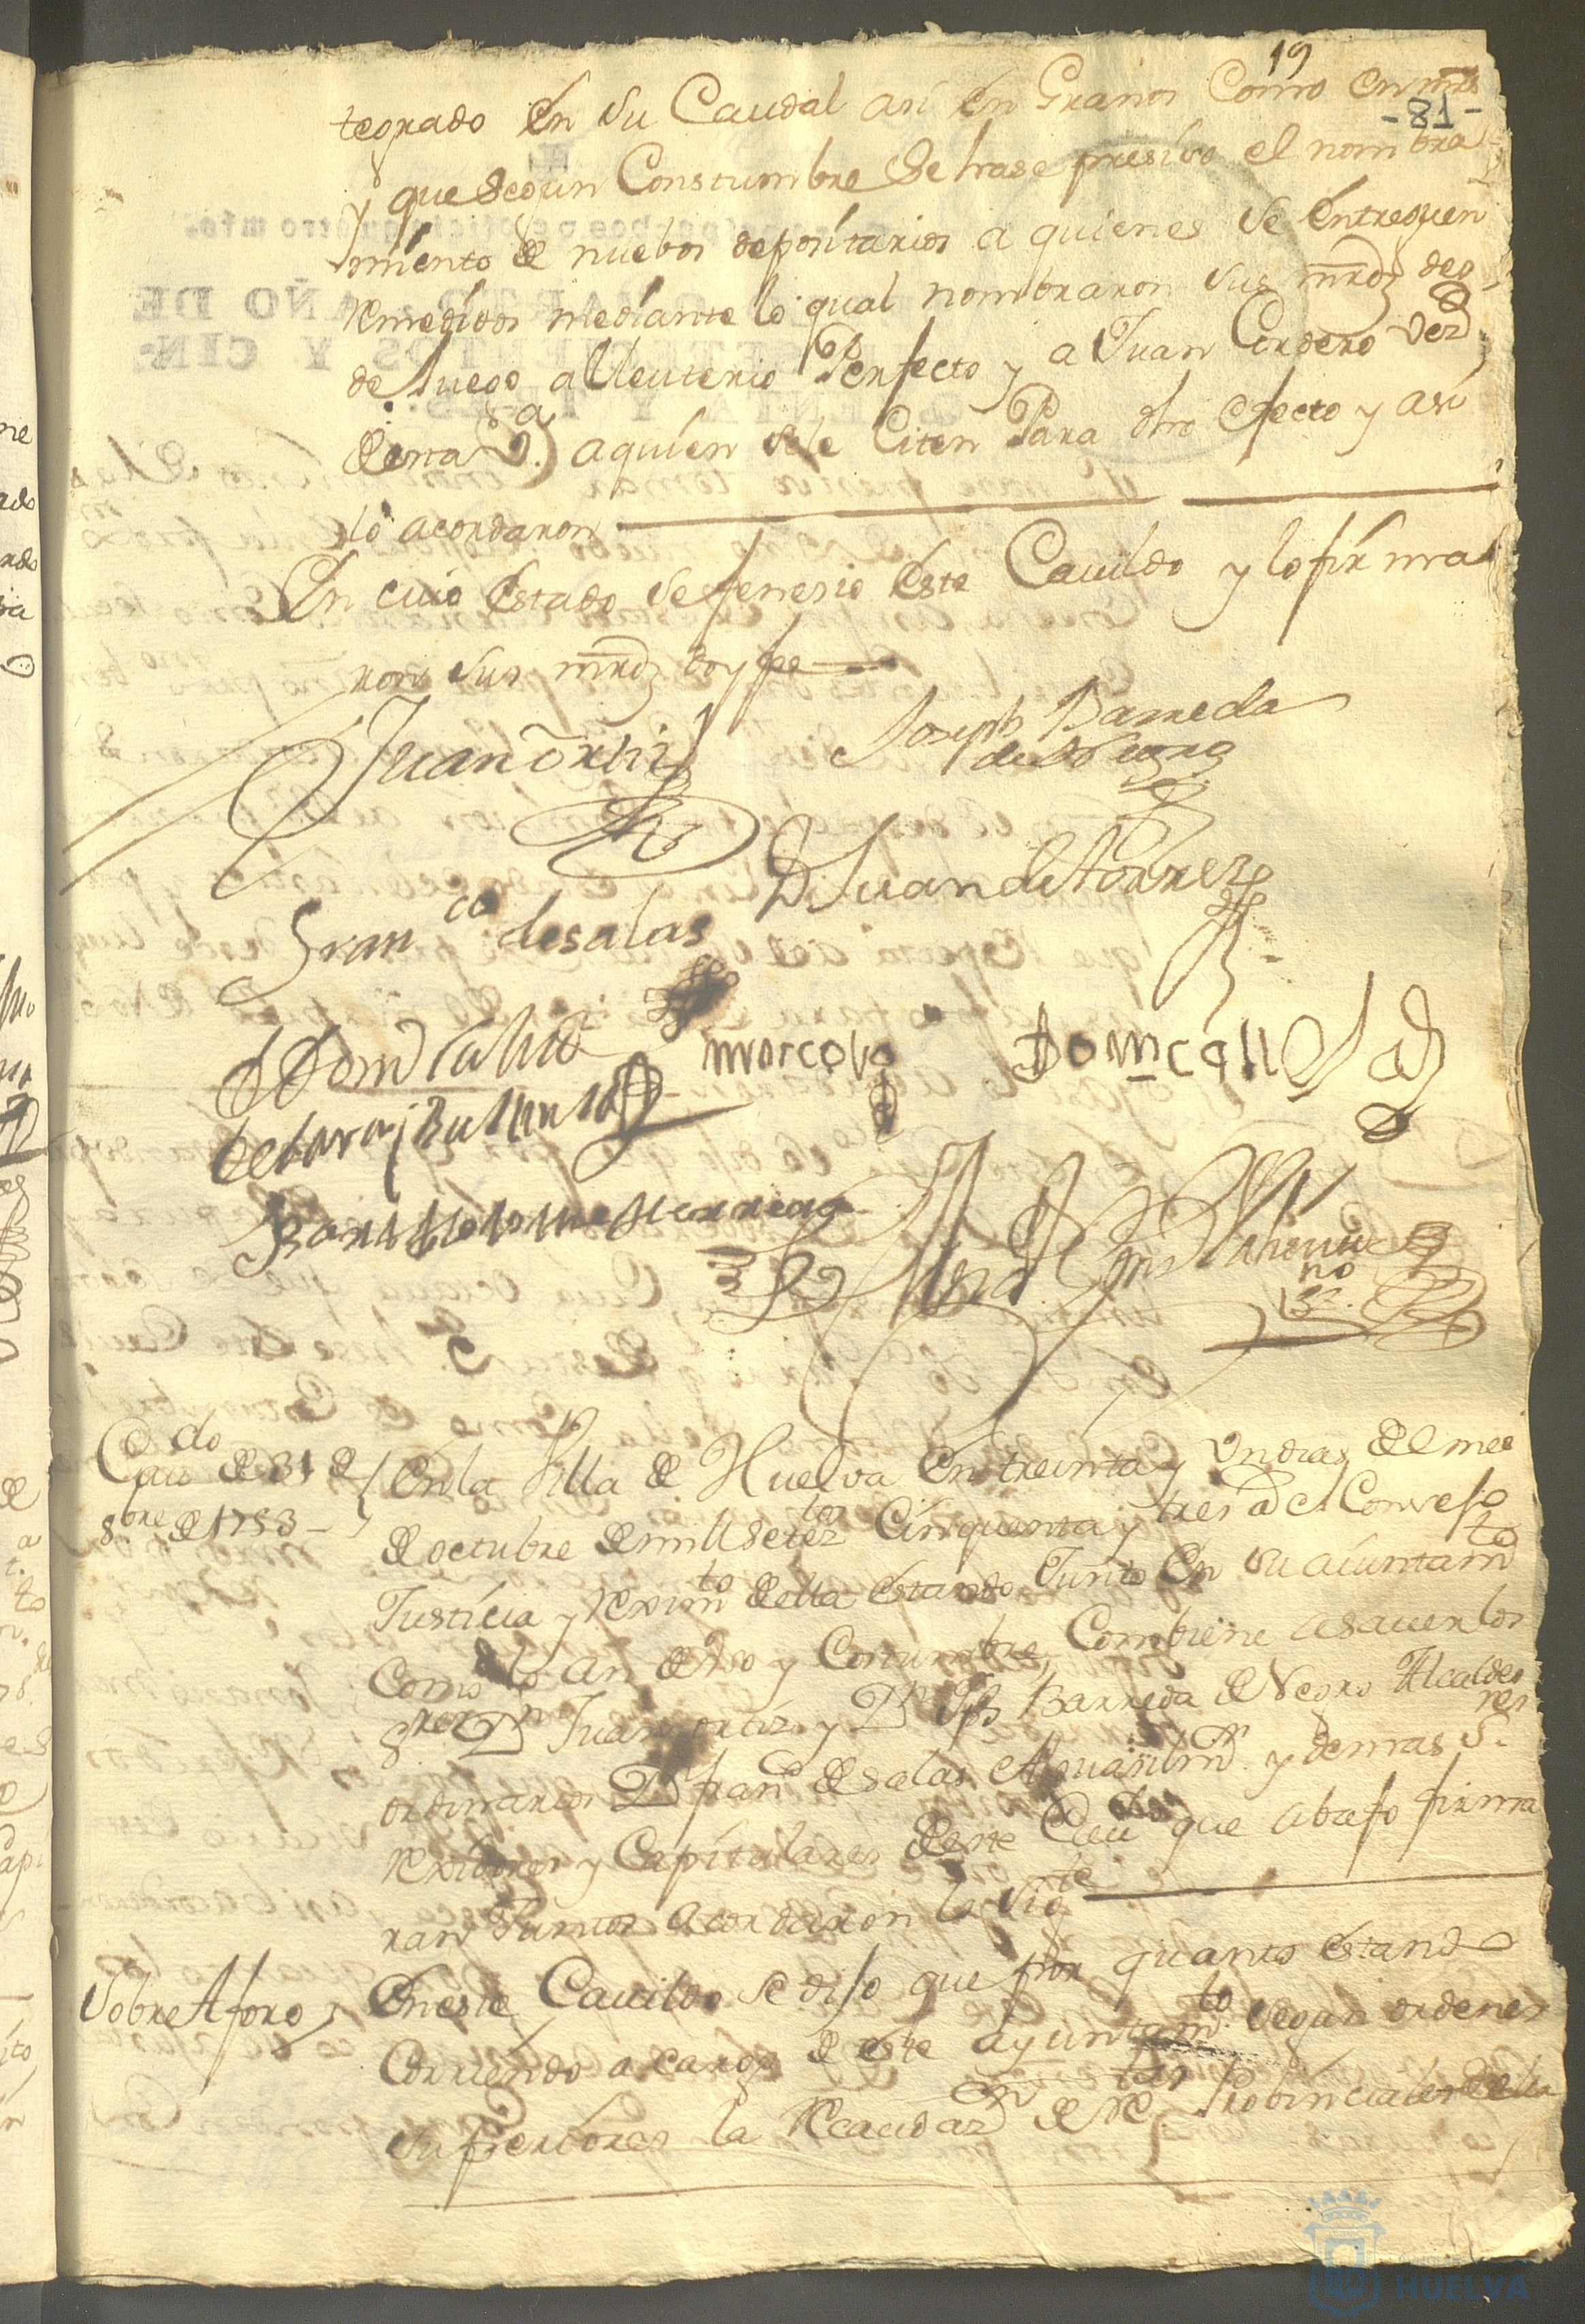 19
-81-
tegrado en su Caudal asi en Granos Como en mrs
y que segun Constumbre se hase presiso el nombra
miento de nuebos depositarios a quienes se entreguen
Remedidos mediante lo qual nombraron sus mrds des
de luego a Eleuterio Perfecto y a Juan Cordero vez
desta Va. a quien se le Citen Para dho efecto y asi
lo acordaron
En cuio estado se fenesio este Cauildo y lo firma
ron sus mrds doy fe
Juan Ortiz
Joseph Barreda
de Negro
D Juan de Torrez
Franco de salas
Marcoho
Bartholome Herrera
Caudo de 31 de
8bre de 1753
En la Villa de Huelva en treinta y un dias del mes
de octubre de mill setezos Cinquenta y tres a el Consejo
Justicia y Reximto della estando Junto en su aiuntamto
Como lo an de Vso y Costumbre Combiene a sauer los
Sres Dn Juan ortiz y Dn Jph Barreda de Negro Alcaldes
ordinarios Dn Franco de salas Alguasil mr y demas Sres
Rexidores y Capitulares deste Caudo que abajo firma
ran Juntos acordaron lo sigte
Sobre Aforo
En este Cauildo se dijo que por quanto estando
Corriendo a cargo de este ayuntamto segun ordenes
superiores la Recaudazn de Rtas Probinciales della
HUELVA